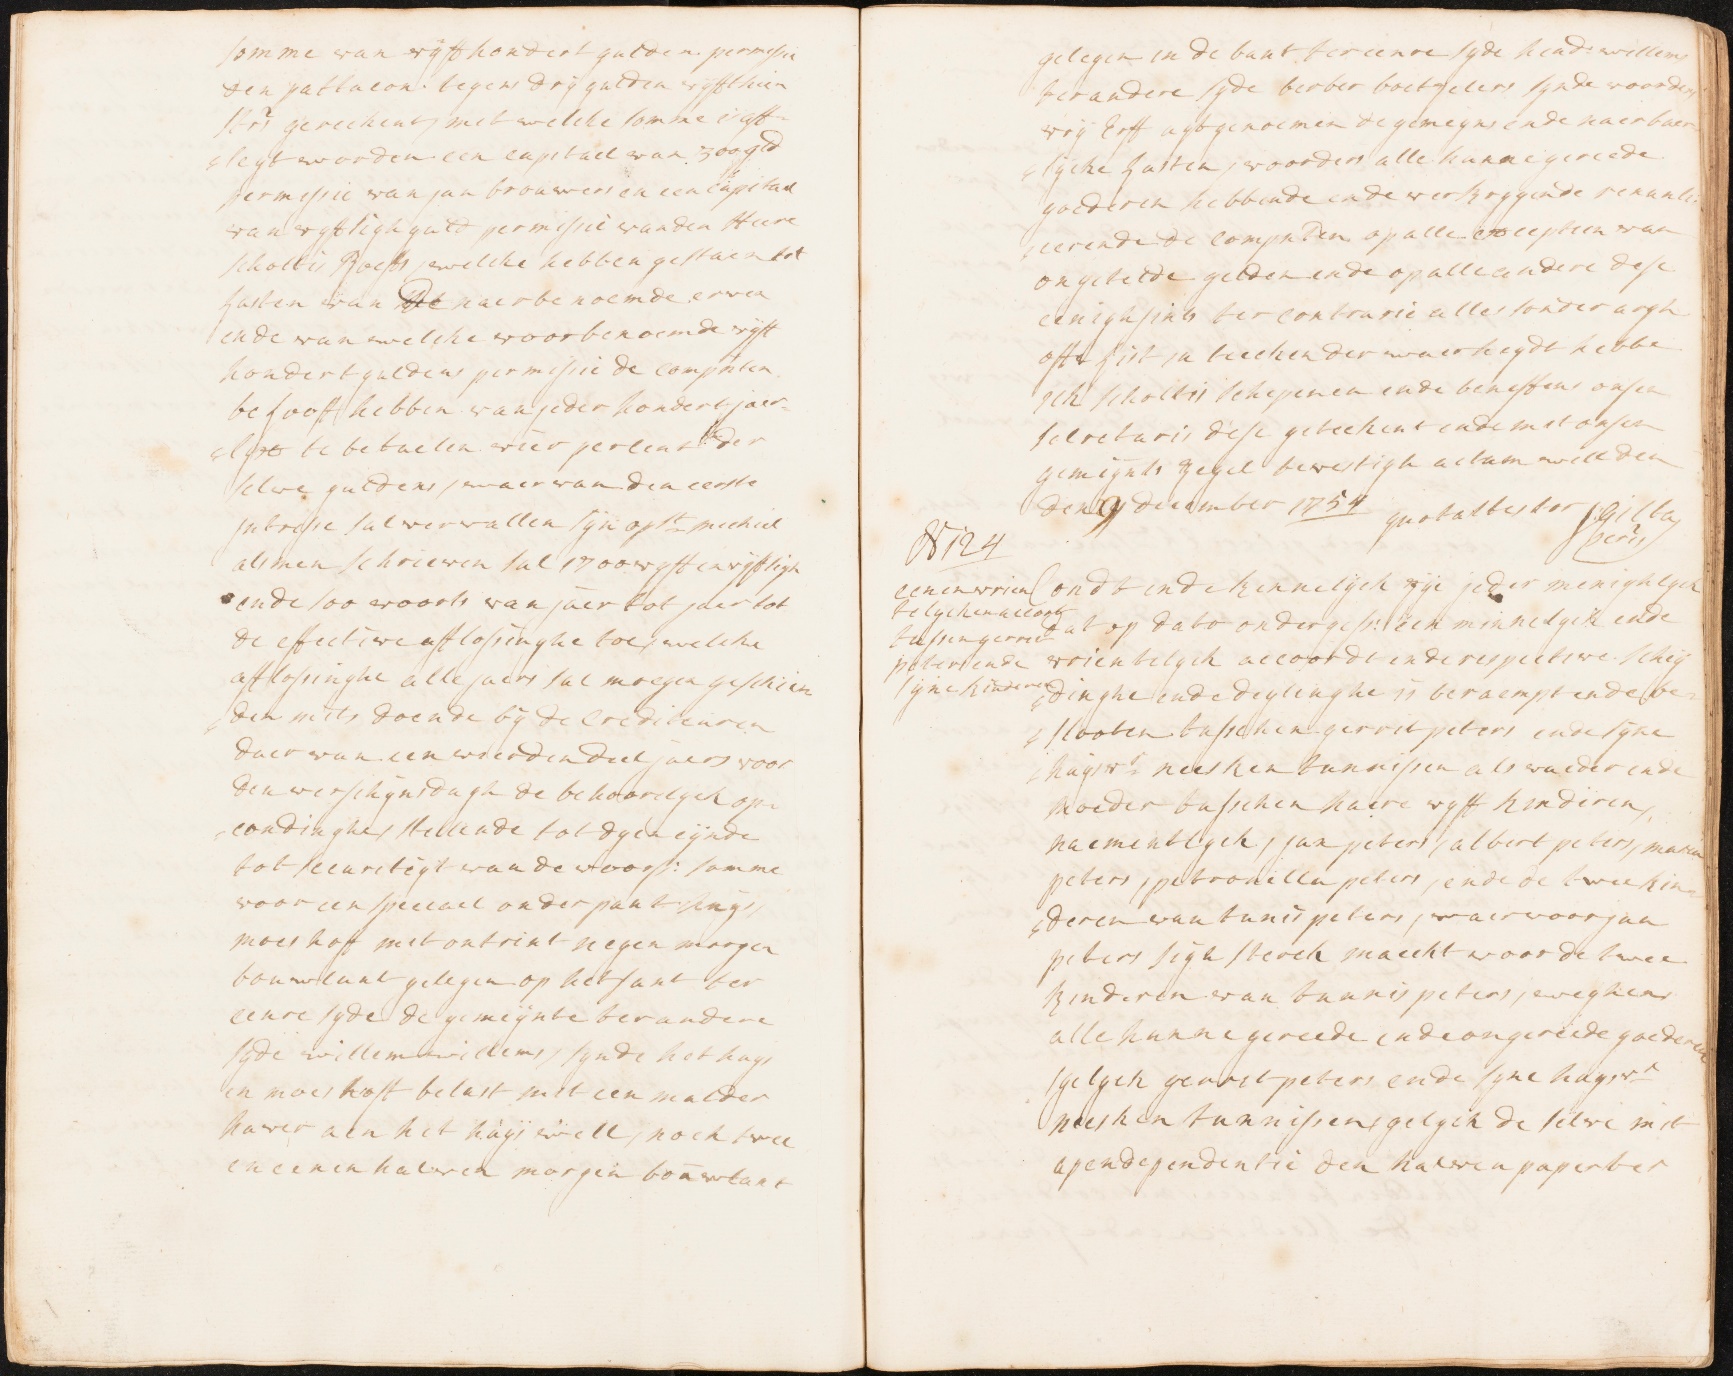 somme van vyffhondert gulden permissie
den pattacon tegens dry gulden vyffthien
st:rs gerechent, met welcke somme is aff-
=legt worden een capitael van 300 gld
permissie van jan brouwers en een capitael
van vyfftigh guld permissie van den Heere
scholtis Roeffs, welcke hebben gestaen tot
lasten van De naerbenoemde erven
ende van welcke voorbenoemde vyff
hondert guldens permissie de compnten
belooft hebben van jeder hondert jaer-
=lyx te betaelen vier percent der
selve guldens, waer van den eerste
intresse sal vervallen syn op st: mechiel
als men schrieven sal 1700 vyff en vyfftigh
ende soo voorts van jaer tot jaer tot
de effective afflossinghe toe, welcke
afflossinghe alle jaers sal moegen geschien
=den mits doende by de crediteuren
daer van een vierden deel jaers voor
den verschynsdagh de behoorelyck op-
=condinghe, stellende tot dyen eynde
tot securiteyt van de voors: somme
voor een speciael onderpant huys,
moeshoff met ontrint negen morgen
bouwlant gelegen op het sant ter
eenre syde de gemeynte ter andere
syde willem willems, synde het huys
en moeshoff belast met een malder
haver aen het huys well, noch twee
en eenen halven morgen bouwlant
gelegen in de bant ter eenre syde hend: willems
ter andere syde berber boetzelers synde voorders
vry Erff uytgenoemen de gemeyns ende naerbuer
=lycke lasten, voorders alle hunne gereede
goederen hebbende ende verkrygende renunti
=eerende de compnten op alle exceptien van
ongetelde gelden ende op alle andere dese
eenighsints ter contrarie alles sonder argh
offt list in teecken der waerheydt hebbe
ick scholtis schepenen ende beneffens onsen
secretaris dese geteekent ende met onsen
gemeynts zegel bevestigh actum well den
den 9 december 1754 quod attestor J Gilta
secris
N 124
eenen vrien
telycken accoort
tussen gerret
peters ende
syne kinderen
Condt ende kennelyck sye jeder menighlyck
dat op dato ondergess: een minnelyck ende
vrientelyck accoordt ende respective schey
=dinghe ende deylinghe is beraempt ende be-
=slooten tusschen gerret peters ende syne
huysv:r neesken tunnissen als vaeder ende
moeder tusschen haere vyff kinderen,
naementlyck, jan peters, albert peters, maria
peters, petronella peters, ende de twee kin-
=deren van tunis peters, waer voor jan
peters sigh sterck maeckt voor de twee
kinderen van tunnis peters, weghens
alle hunne gereede ende ongereede goederen
gelyck gerret peters ende syne huysv:r
neesken tunnissens gelyck de selve met
apendependentie den halven paperter